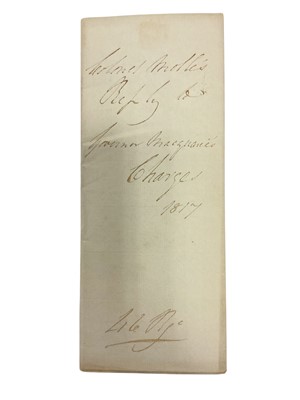 Colonel Molle's
Reply to
Governor Macquarie's
Charges
1817